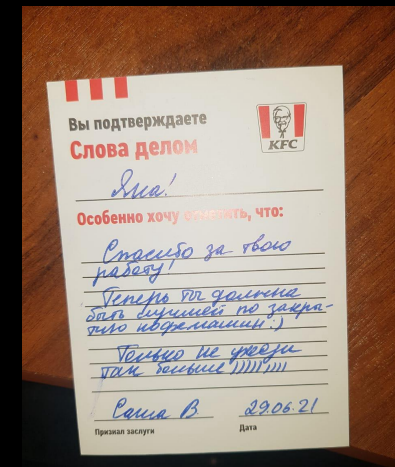 Вы подтверждаете
Слова делом
KFC
Яна!
Особенно хочу отметить, что:
Спасибо за твою
работу!
Теперь ты должна
быть лучшей по закры-
тию кофемашин:)
Только не
так больше )))))))))
Саша В. 29.06.21
Признал заслуги Дата